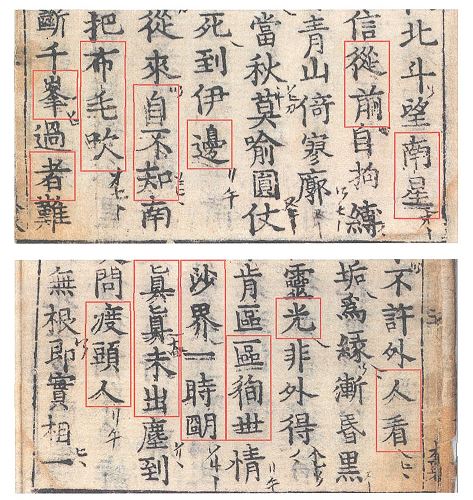 北斗望南星
信從前自拘縛
青山倚寥廓
當秋莫喻圓仗
死到伊邊
從來自不知南
把布毛吹
斷千峯過者難
不許外人看
垢爲緣漸昏黑
靈光非外得
肯區區徇世情
沙界一時明
眞眞未出塵到
問疲頭人
無根即實相一